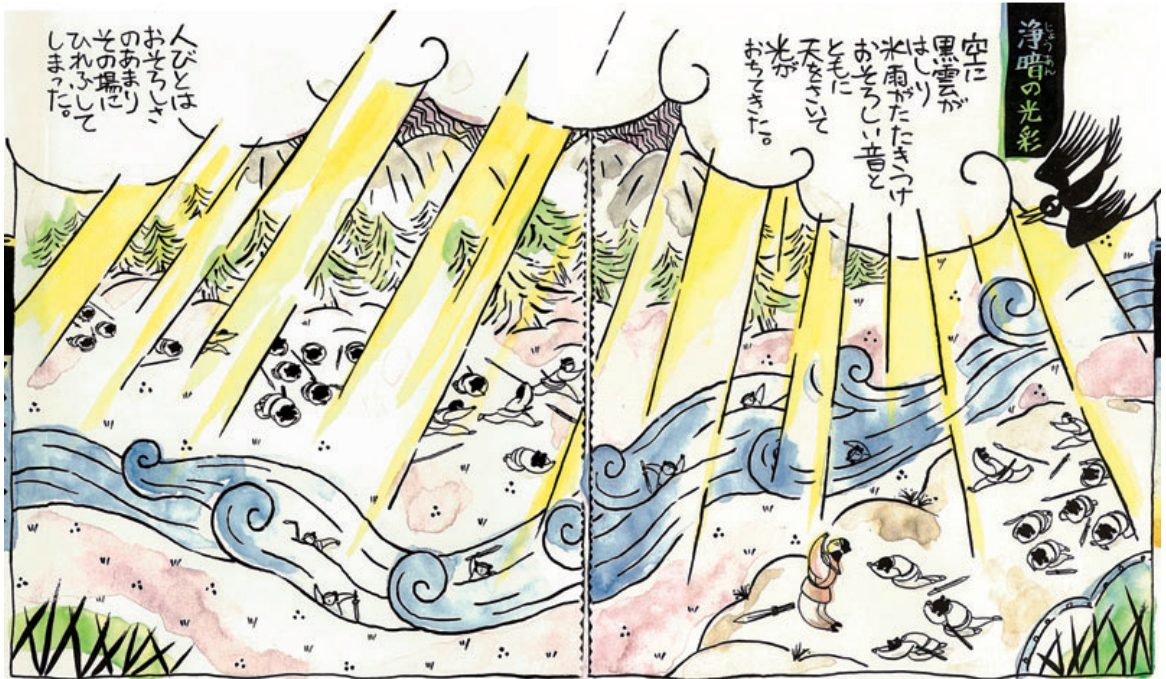 浄暗の光彩
じょうあん
空に
黒雲が
はしり
氷雨がたたきつけ
おそろしい音と
ともに
天をさいて
光が
おちてきた。
人びとは
おそろしさ
のあまり
その場に
ひれふして
しまった。